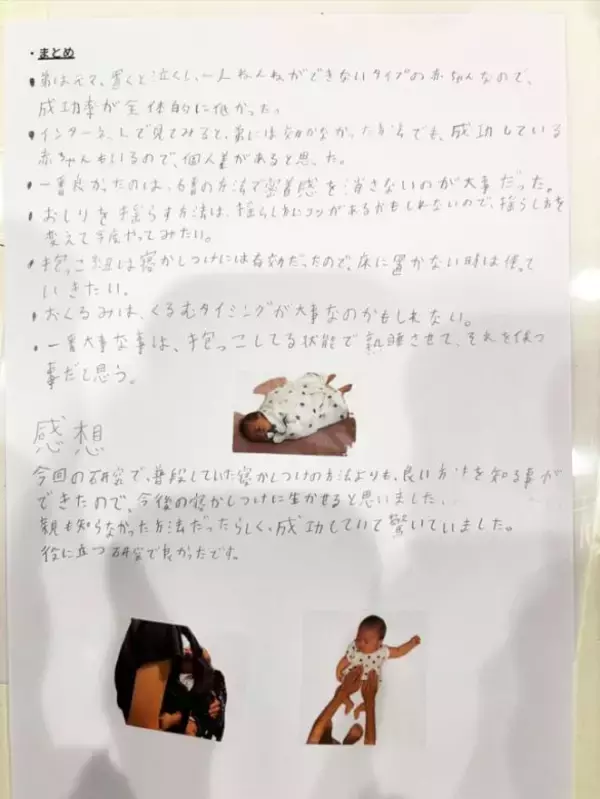 ・まとめ
•弟は元々、置くと泣くし、一人ねんねができないタイプの赤ちゃんなので、
成功率が全体的に低かった。
•インターネットで見てみると、弟には効かなかった方法でも、成功している
赤ちゃんもいるので、個人差があると思った。
•一番良かったのは、6番の方法で密着感を消さないのが大事だった。
•おしりを揺らす方法は、揺らし方にコツがあるかもしれないので、揺らし方を
変えて今度やってみたい。
•抱っこ紐は寝かしつけには有効だったので、床に置かない時は使って
いきたい。
•おくるみは、くるむタイミングが大事なのかもしれない。
•一番大事な事は、抱っこしてる状態で熟睡させて、それを保つ
事だと思う。
感想
今回の研究で、普段していた寝かしつけの方法よりも、良い方法を知る事が
できたので、今後の寝かしつけに生かせると思いました。
親も知らなかった方法だったらしく、成功していて驚いていました。
役に立つ研究で良かったです。